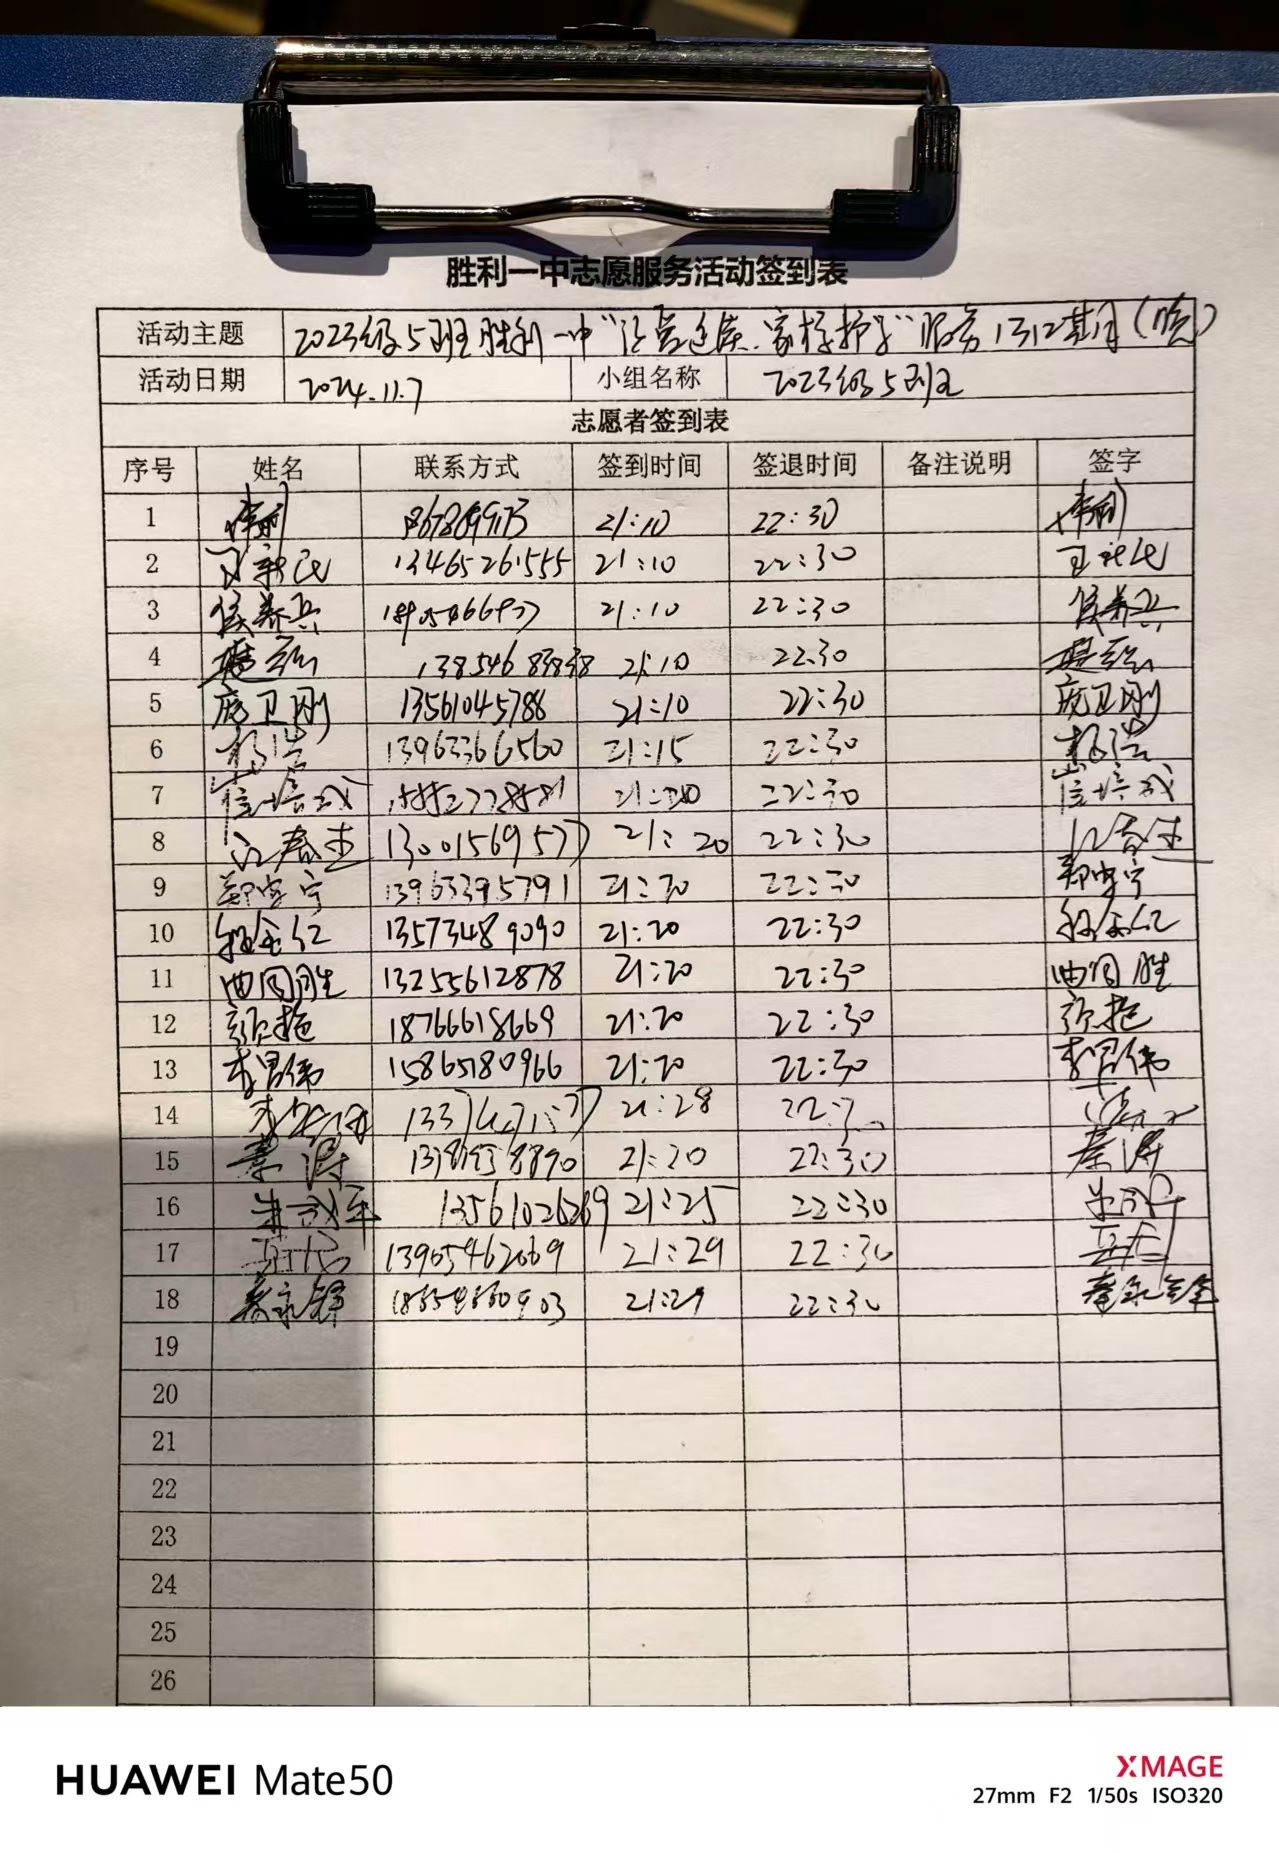 胜利一中志愿服务活动签到表
活动主题 2023级5班胜利一中" 家校护学"服务 (晚)
活动日期 2024.11.7 小组名称 2023级5班
志愿者签到表
序号 姓名 联系方式 签到时间 签退时间 备注说明 签字
1 21:10 22:30
2 王新民 13465261555 21:10 22:30 王新民
3 侯养兵 21:10 22:30 侯养兵
4 13854683838 21:10 22:30
5 庞卫刚 13561045788 21:10 22:30 庞卫刚
6 杨浩 13963366560 21:15 22:30 杨浩
7 崔培成 21:20 22:30 崔培成
8 江春生 13001569577 21:20 22:30 江春生
9 郑学宁 13963395791 21:20 22:30 郑学宁
10 13573489090 21:20 22:30
11 曲同胜 13255612878 21:20 22:30 曲同胜
12 18766618669 21:20 22:30
13 李昌伟 15865180966 21:20 22:30 李昌伟
14 21:28
15 秦涛 21:20 22:30 秦涛
16 朱成军 13561026269 21:25 22:30
17 13905462069 21:29 22:30
18 秦永锋 21:29 22:30 秦永锋
19
20
21
22
23
24
25
26
HUAWEI Mate50
XMAGE
27mm F2 1/50s ISO320